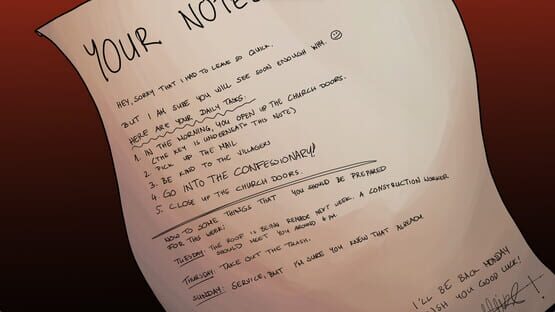 YOUR NOTES
HEY, SORRY THAT I HAD TO LEAVE SO QUICK.
BUT I AM SURE YOU WILL SEE SOON ENOUGH WHY. ☺
HERE ARE YOUR DAILY TASKS:
1. IN THE MORNING, YOU OPEN UP THE CHURCH DOORS.
(THE KEY IS UNDERNEATH THIS NOTE)
2. PICK UP THE MAIL
3. BE KIND TO THE VILLAGERS
4. GO INTO THE CONFESSIONARY!
5. CLOSE UP THE CHURCH DOORS.
NOW TO SOME THINGS THAT YOU SHOULD BE PREPARED
FOR THIS WEEK:
TUESDAY: THE ROOF IS BEING REMADE NEXT WEEK. A CONSTRUCTION WORKER
SHOULD MEET YOU AROUND 6 PM.
THURSDAY: TAKE OUT THE TRASH.
SUNDAY: SERVICE, BUT I'M SURE YOU KNEW THAT ALREADY
I'LL BE BACK MONDAY
WISH YOU GOOD LUCK!